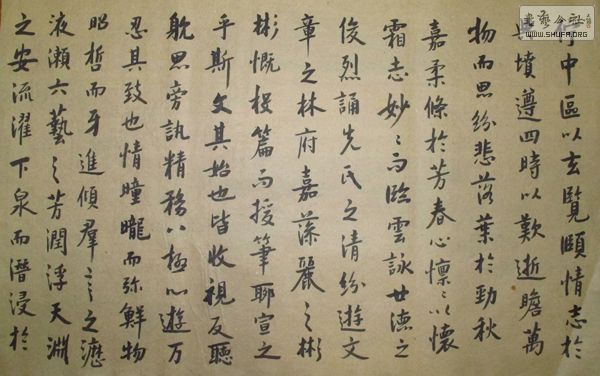 中區以玄覽頤情志於
墳遵四時以歎逝瞻萬
物而思紛悲落葉於勁秋
嘉柔條於芳春心懍〻以懷
霜志妙〻而臨雲詠世德之
俊烈誦先氏之清紛遊文
章之林府嘉藻麗之彬
彬慨投篇而援筆聊宣之
乎斯文其始也皆收視反聽
躭思旁訊精務八極心遊万
忍其致也情曈曨而弥鮮物
昭晢而牙進傾羣言之瀝
液瀨六藝之芳潤浮天淵
之安流濯下泉而潛浸於
WWW.SHUFA.ORG